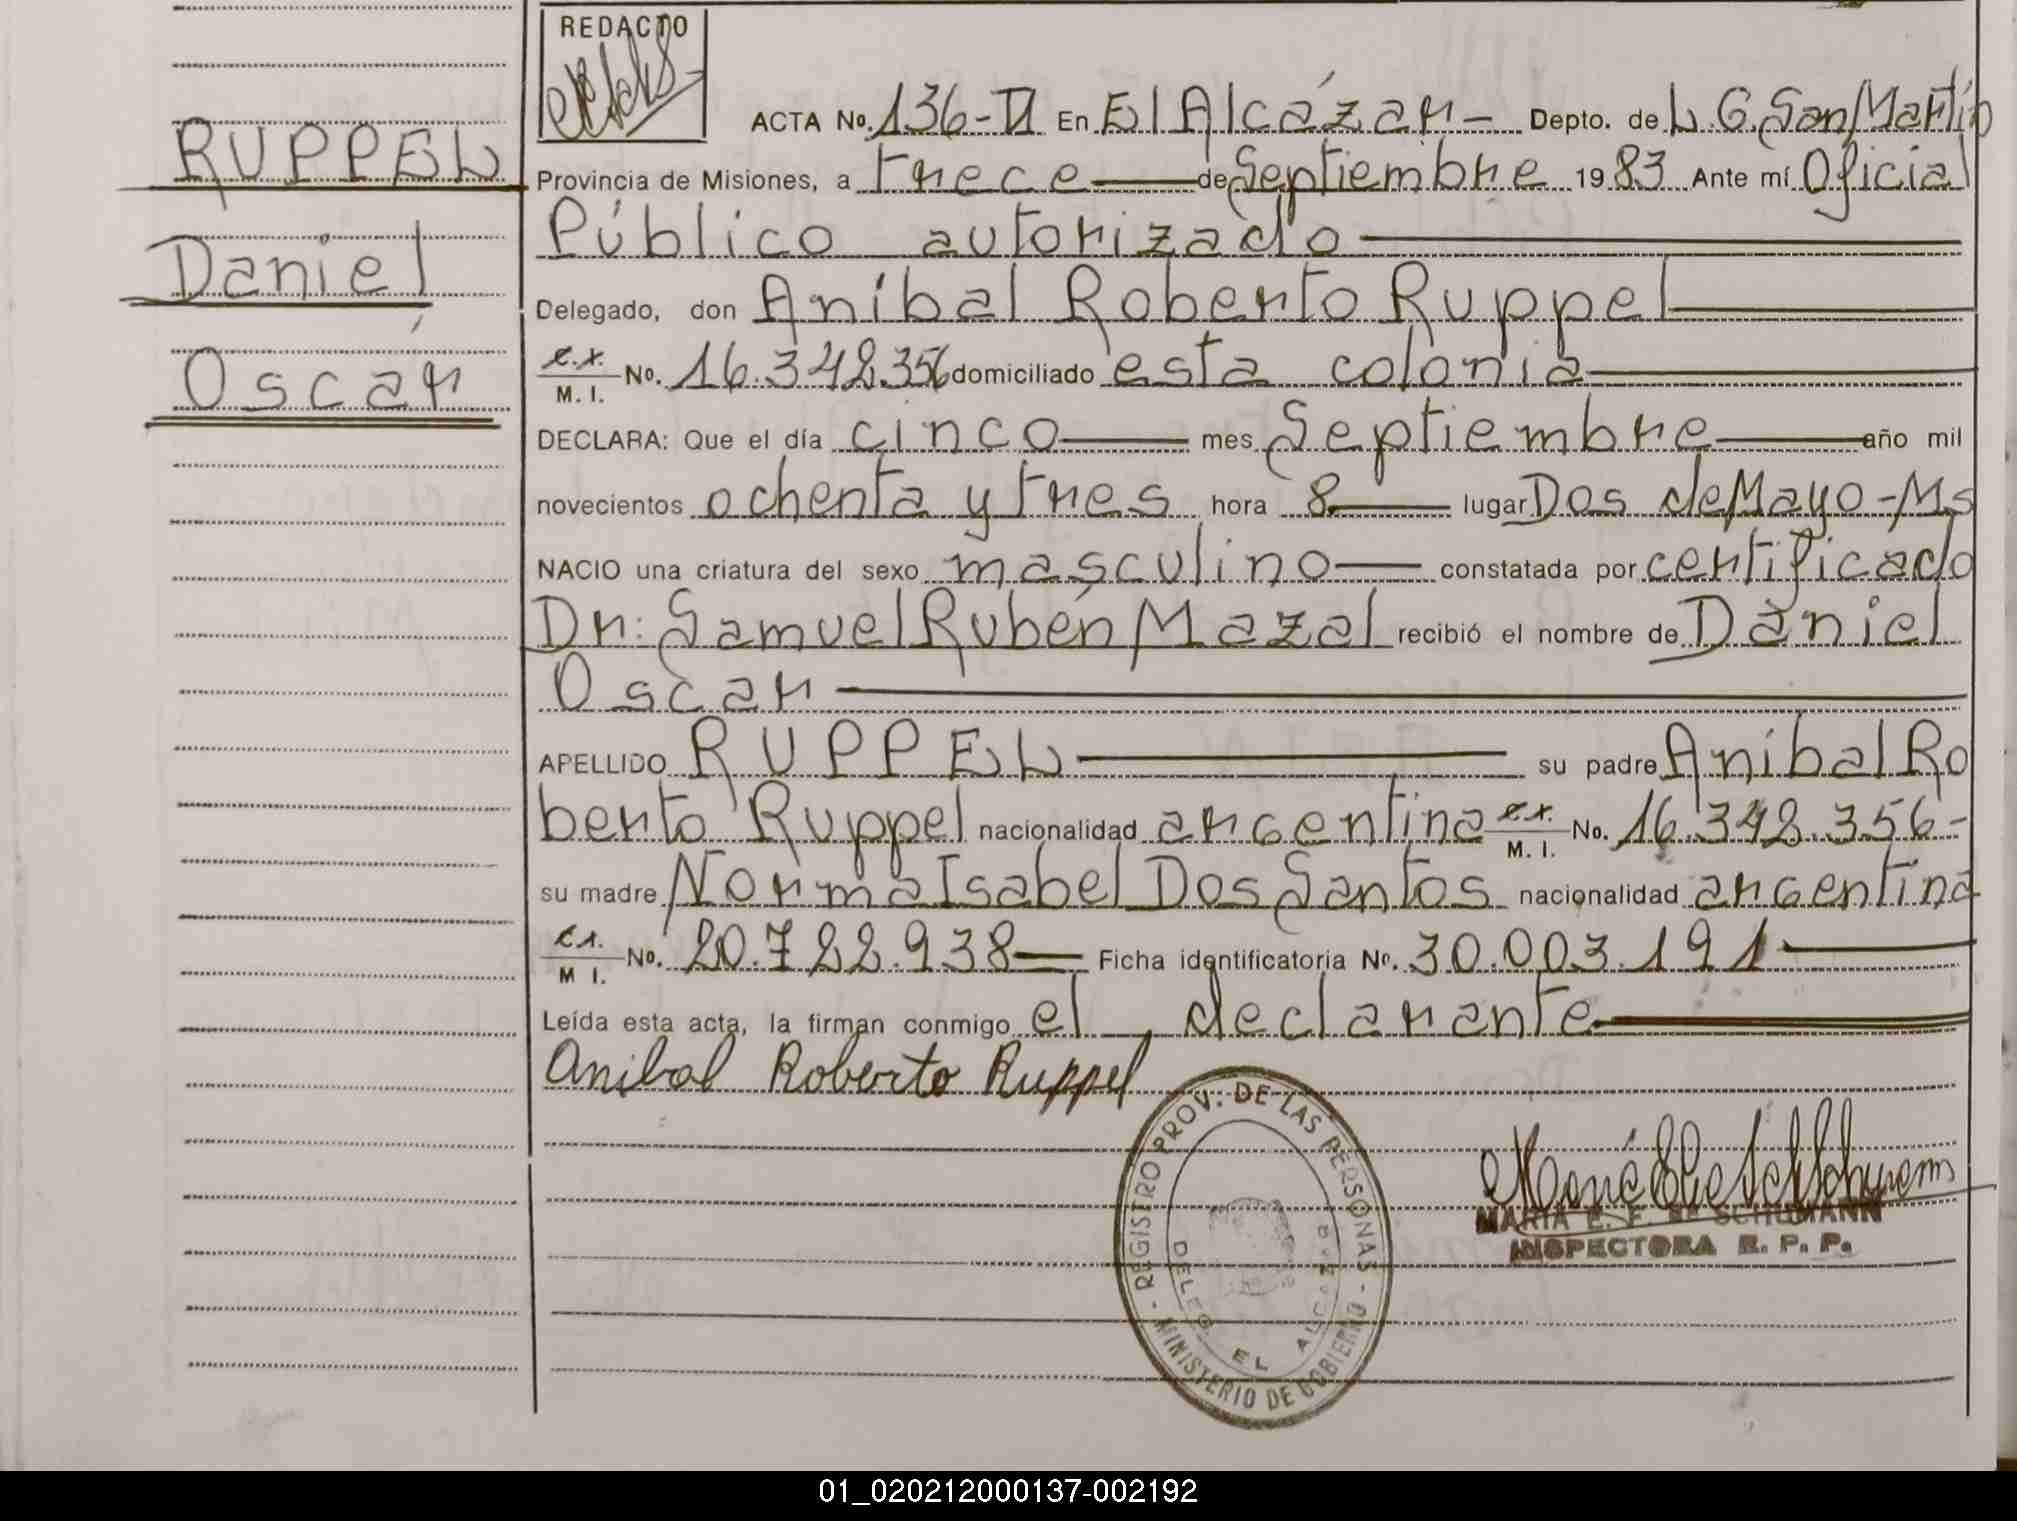 RUPPEL
Daniel
Oscar
REDACTO
ACTA No. 136-TI En El Alcázar- Depto. de L.G.San Martín
Provincia de Misiones, a trece de Septiembre 1983 Ante mí Oficial
Público autorizado
Delegado, don Aníbal Roberto Ruppel
c.i. M. I. No. 16.342.356 domiciliado esta colonia
DECLARA: Que el día cinco mes Septiembre año mil
novecientos ochenta y tres hora 8 lugar Dos de Mayo-Ms
NACIO una criatura del sexo masculino constatada por certificado
Dr: Samuel Rubén Mazal recibió el nombre de Daniel
Oscar
APELLIDO RUPPEL su padre Aníbal Ro
berto Ruppel nacionalidad argentina c.i. M. I. No. 16.342.356-
su madre Norma Isabel Dos Santos nacionalidad argentina
c.i. M I. No. 20.722.938 Ficha identificatoria No. 30.003.191
Leída esta acta, la firman conmigo el declarante
Anibal Roberto Ruppel
REGISTRO PROV. DE LAS PERSONAS - MINISTERIO DE GOBIERNO -
DELEG. EL ALCAZAR
MARIA E. F. de SCHUMANN
INSPECTORA R. P. P.
01_020212000137-002192